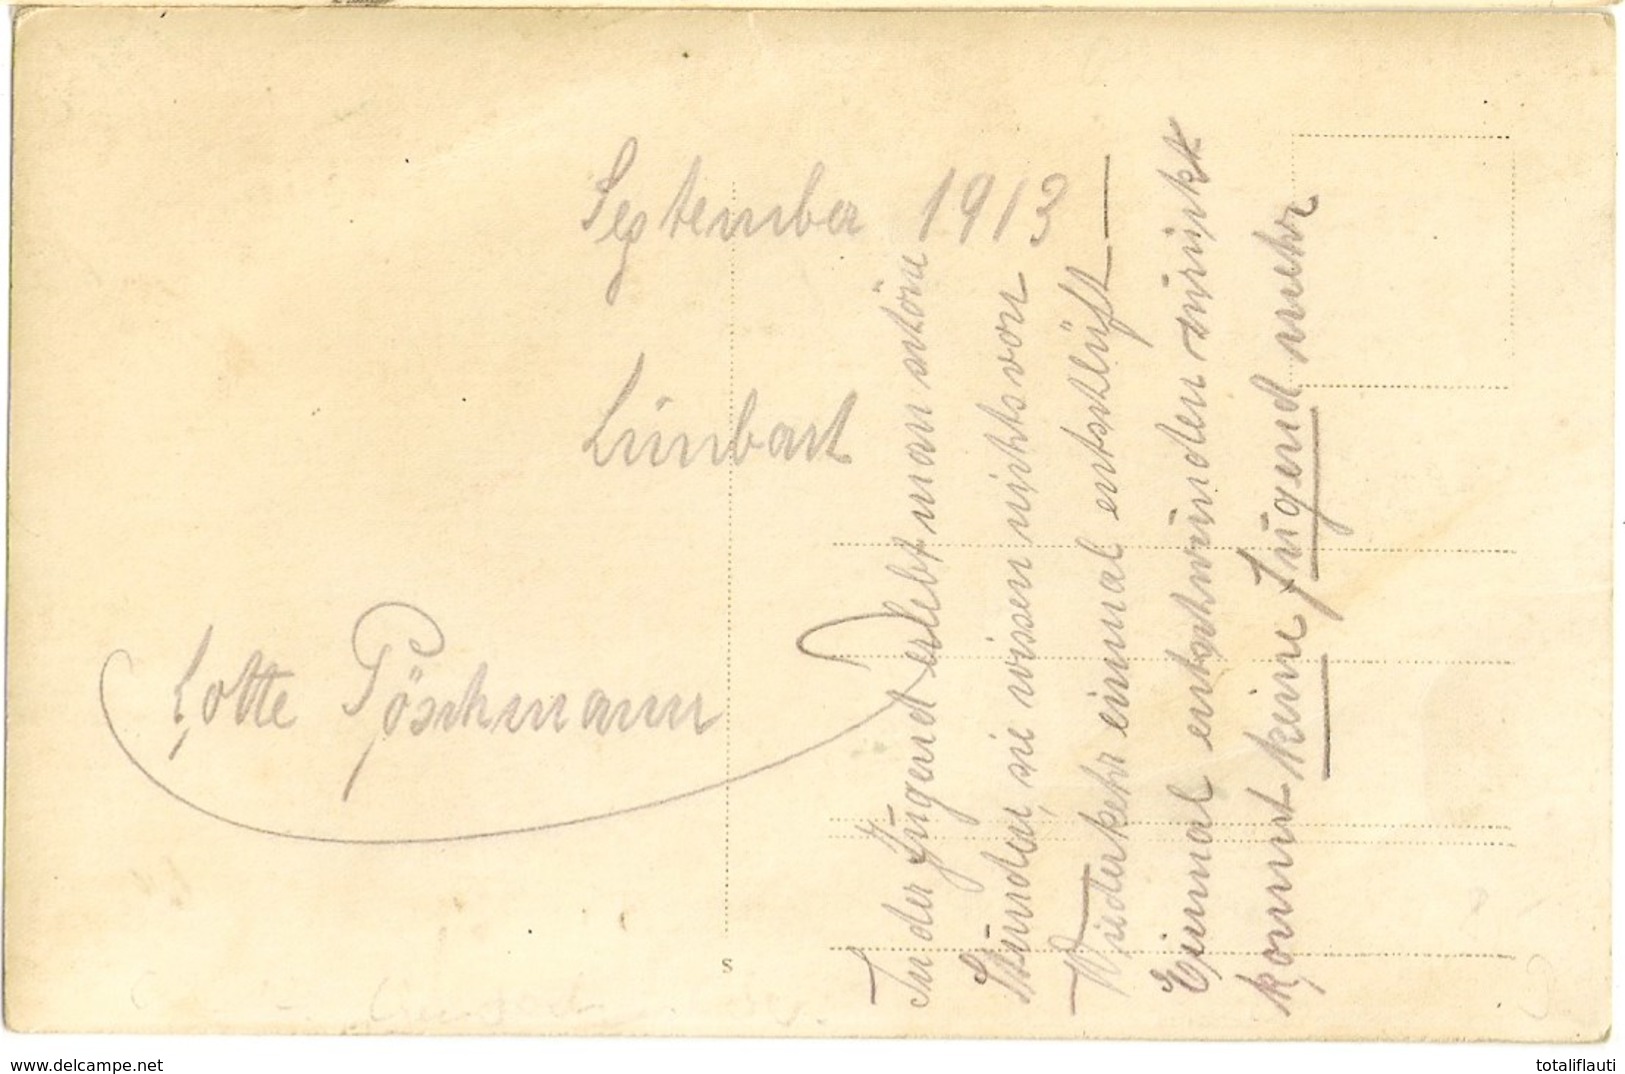 September 1913
Limbach
Lotte Pöschmann
In der Jugend erlebt man schöne
Stunden, sie wissen nichts von
Wiederkehr einmal entschlüft —
Einmal entschwunden zurück
kommt keine Jugend mehr
s
www.delcampe.net
totaliflauti